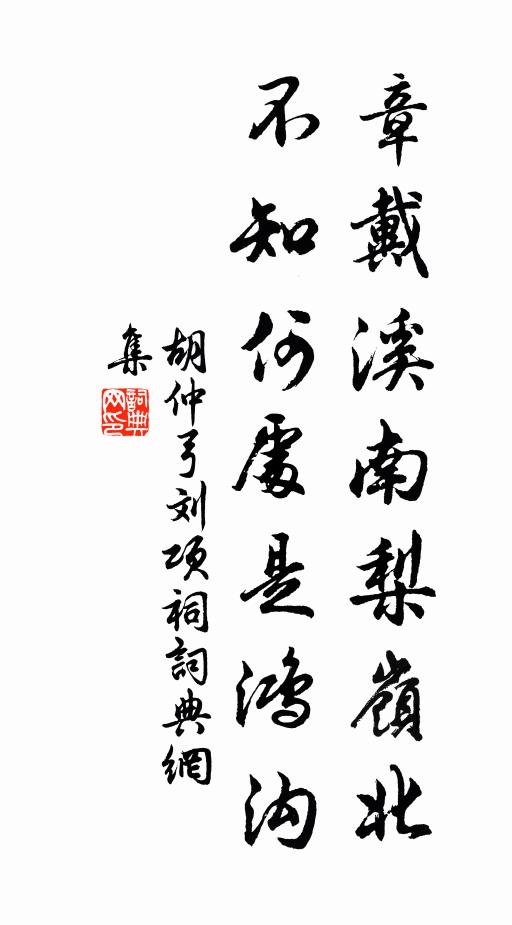 章戴溪南梨嶺北
不知何處是鴻沟
胡仲弓刘项祠詞典網
集
詞典网印